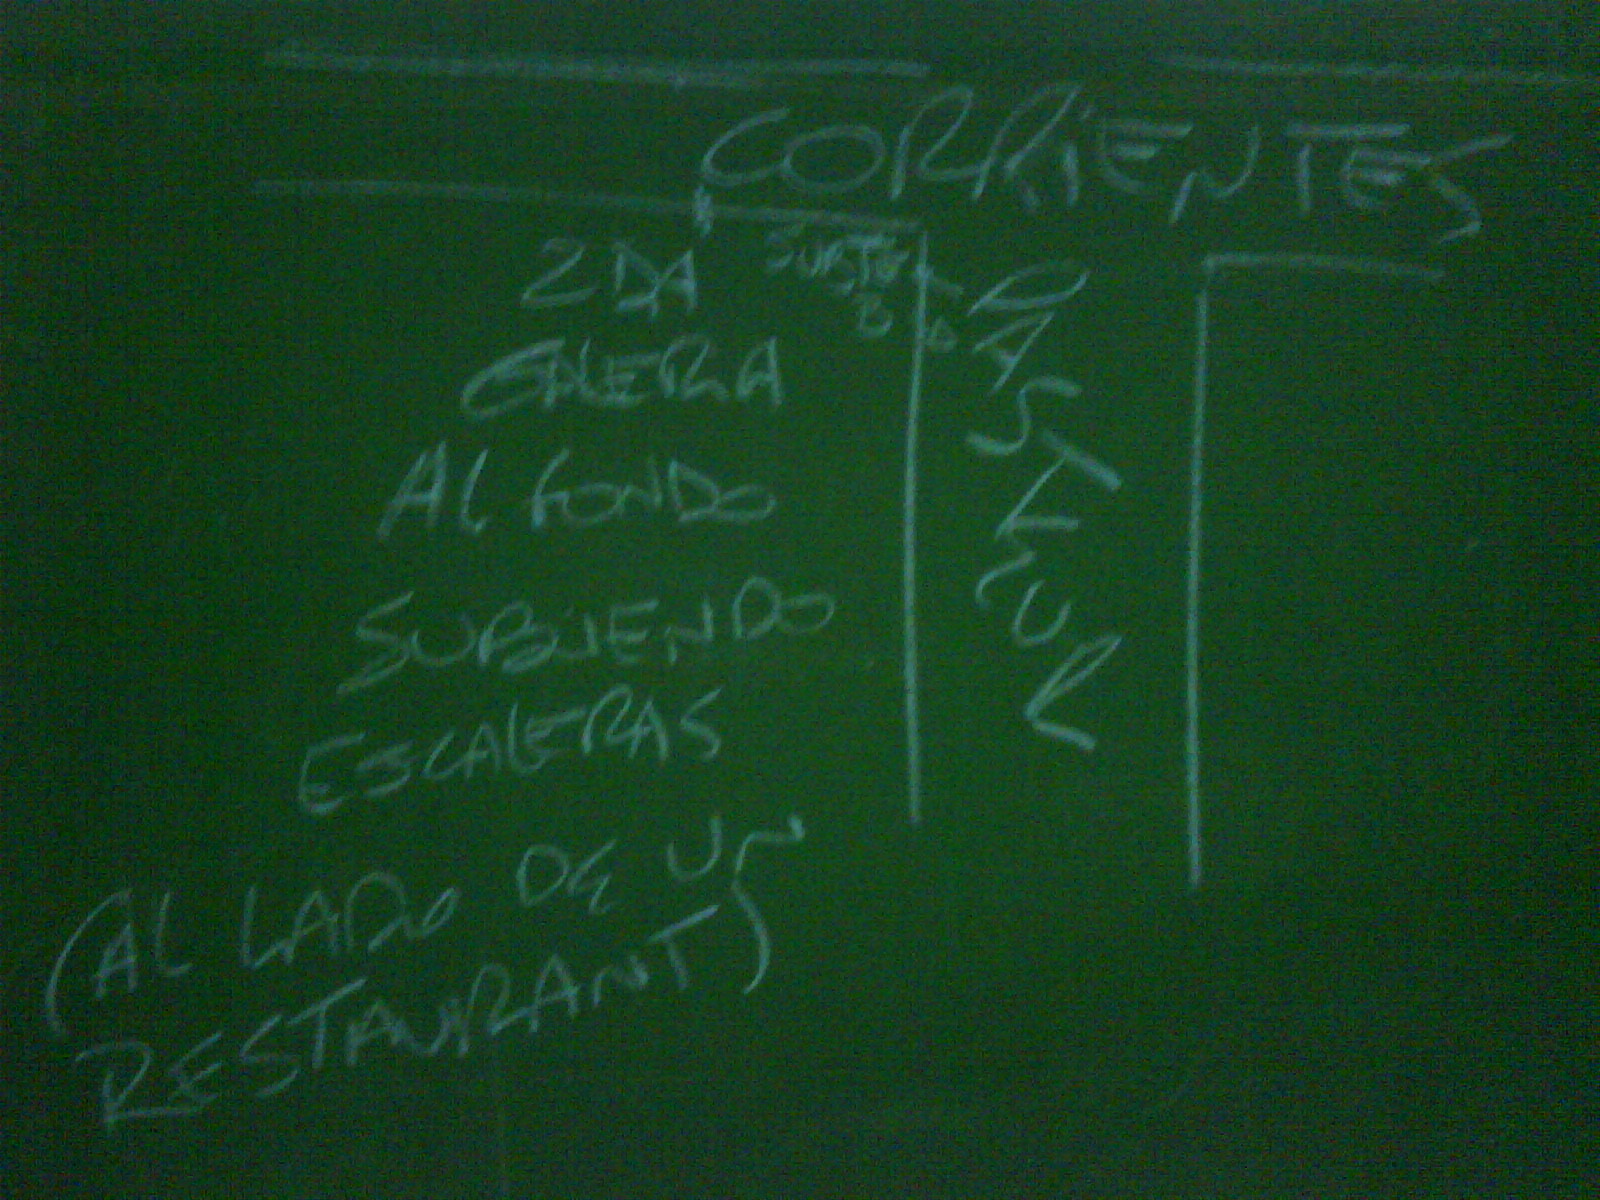 CORRIENTES
2DA
SUBTE
B
GALERA
AL FONDO
SUBIENDO
ESCALERAS
(AL LADO DE UN
RESTAURANT)
PASTEUR